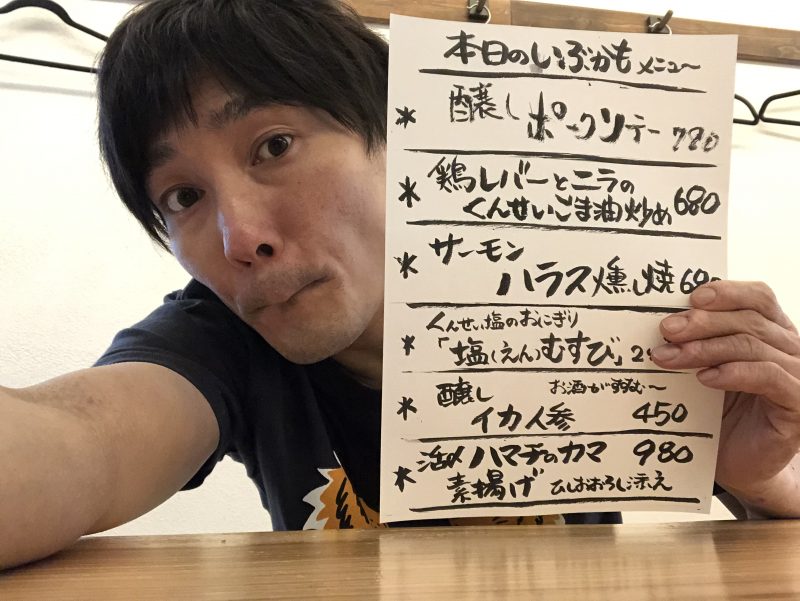 本日のいぶかもメニュー
* 醸し ポークソテー 780
* 鶏レバーとニラの
くんせいごま油炒め 680
* サーモン
ハラス燻し焼 680
くんせい塩のおにぎり
* 「塩(えん)むすび」 2
* 醸し お酒がすすむ〜
イカ人参 450
* 活〆ハマチのカマ 980
素揚げ ひしおおろし添え